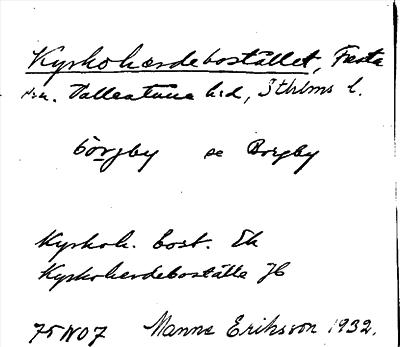 Kyrkoherdebostället, Fasta
sn. Vallentuna hd, Sthlms l.
bòrgby se Borgby
Kyrkoh. bost. Ek
Kyrkoherdeboställe JK
75 NO7 Manne Eriksson 1932.